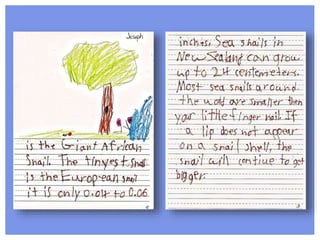 Joseph
is the Giant African
Snail. The tinyest snail
Is the European snail
it is only 0.04 to 0.06
inches. Sea snails in
New Sealand can grow
up to 24 centemeters.
Most sea snails around
the wold are smaller then
your little finger nail. If
a lip does not appear
on a snail shell, the
snail will contiue to get
bigger.